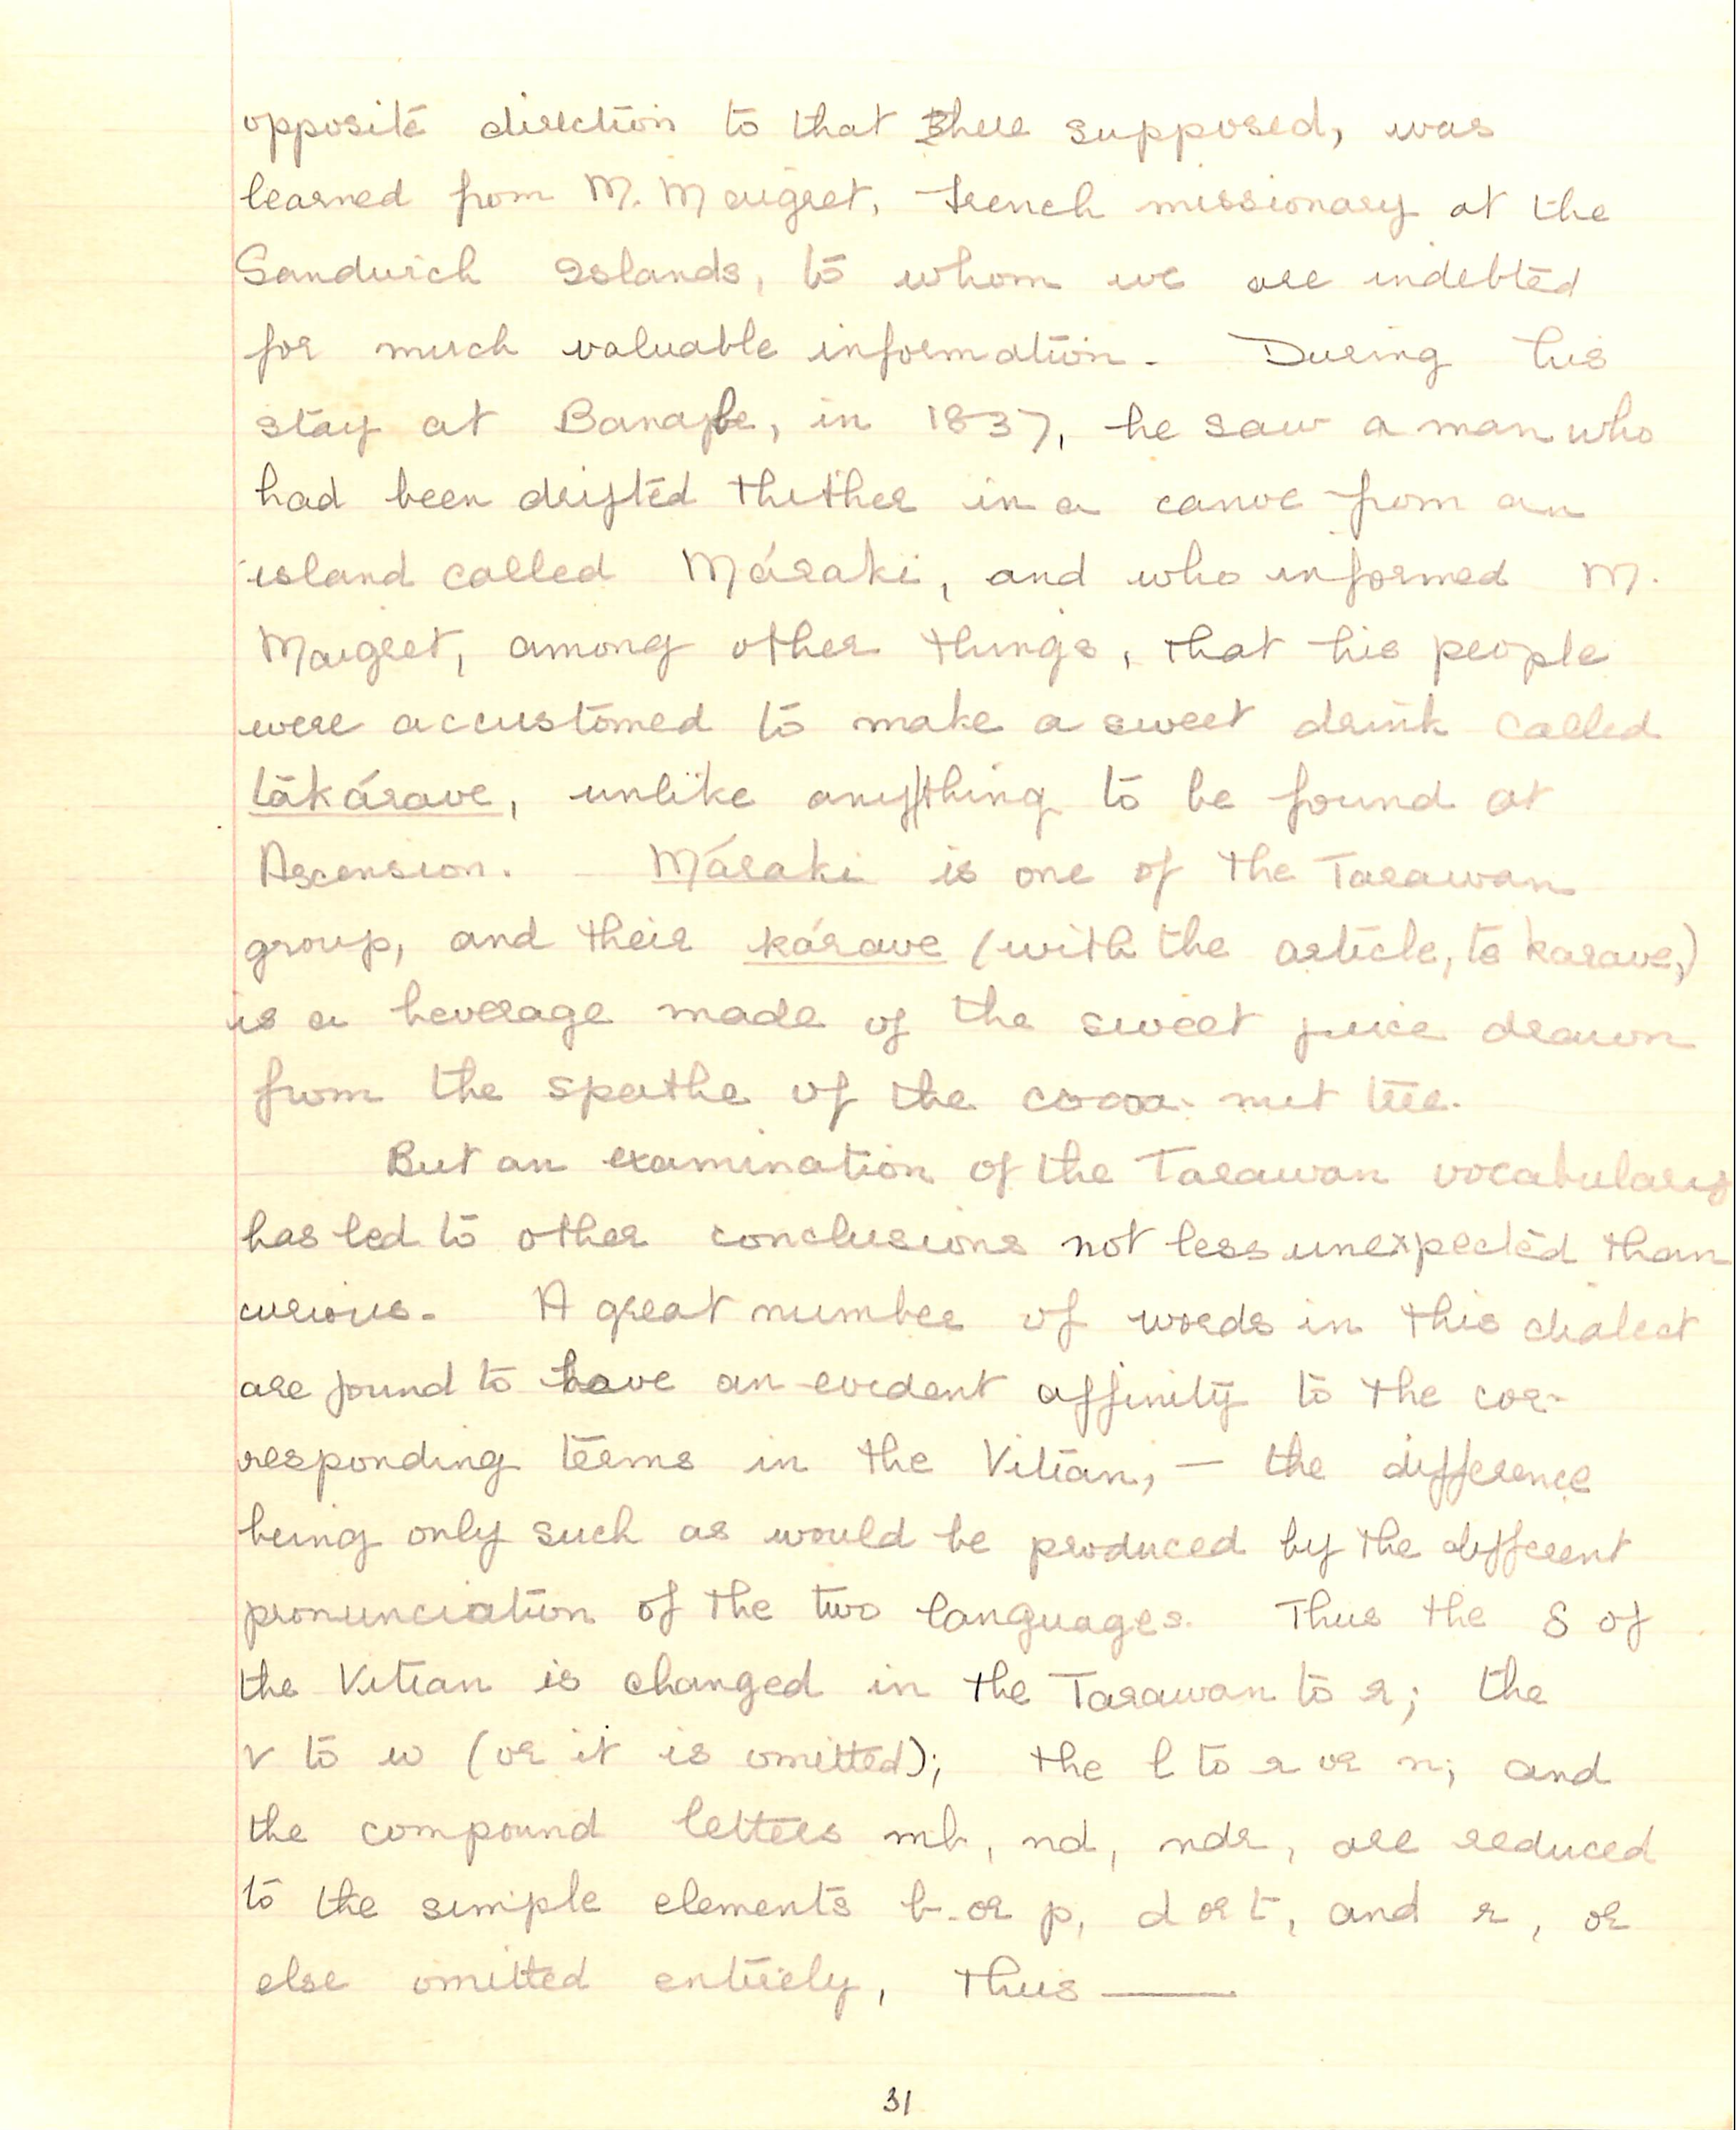 opposite direction to that here supposed, was
learned from M. Maigret, French missionary at the
Sandwich Islands, to whom we are indebted
for much valuable information. During his
stay at Banabe, in 1837, he saw a man who
had been drifted thither in a canoe from an
island called Máraki, and who informed M.
Maigret, among other things, that his people
were accustomed to make a sweet drink called
tākárave, unlike anything to be found at
Ascension. Máraki is one of the Tarawan
group, and their kárave (with the article, te karave,)
is a beverage made of the sweet juice drawn
from the spathe of the cocoa-nut tree.
But an examination of the Tarawan vocabulary
has led to other conclusions not less unexpected than
curious. A great number of words in this dialect
are found to have an evident affinity to the cor-
responding terms in the Vitian, — the difference
being only such as would be produced by the different
pronunciation of the two languages. Thus the S of
the Vitian is changed in the Tarawan to r; the
v to w (or it is omitted); the l to r or n; and
the compound letters mb, nd, ndr, are reduced
to the simple elements b or p, d or t, and r, or
else omitted entirely, thus ——
31